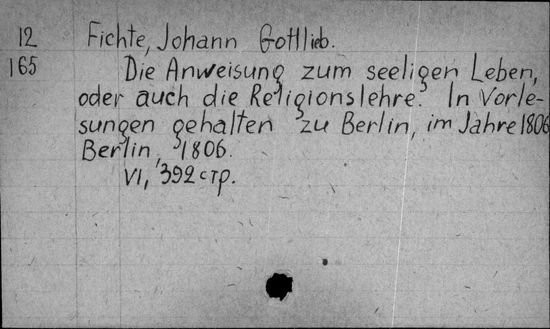 12 Fichte, Johann Gottlieb.
165 Die Anweisung zum seeligen Leben,
oder auch die Religionslehre. In Vorle-
sungen gehalten zu Berlin, im Jahre 1806
Berlin, 1806.
VI, 392 стр.